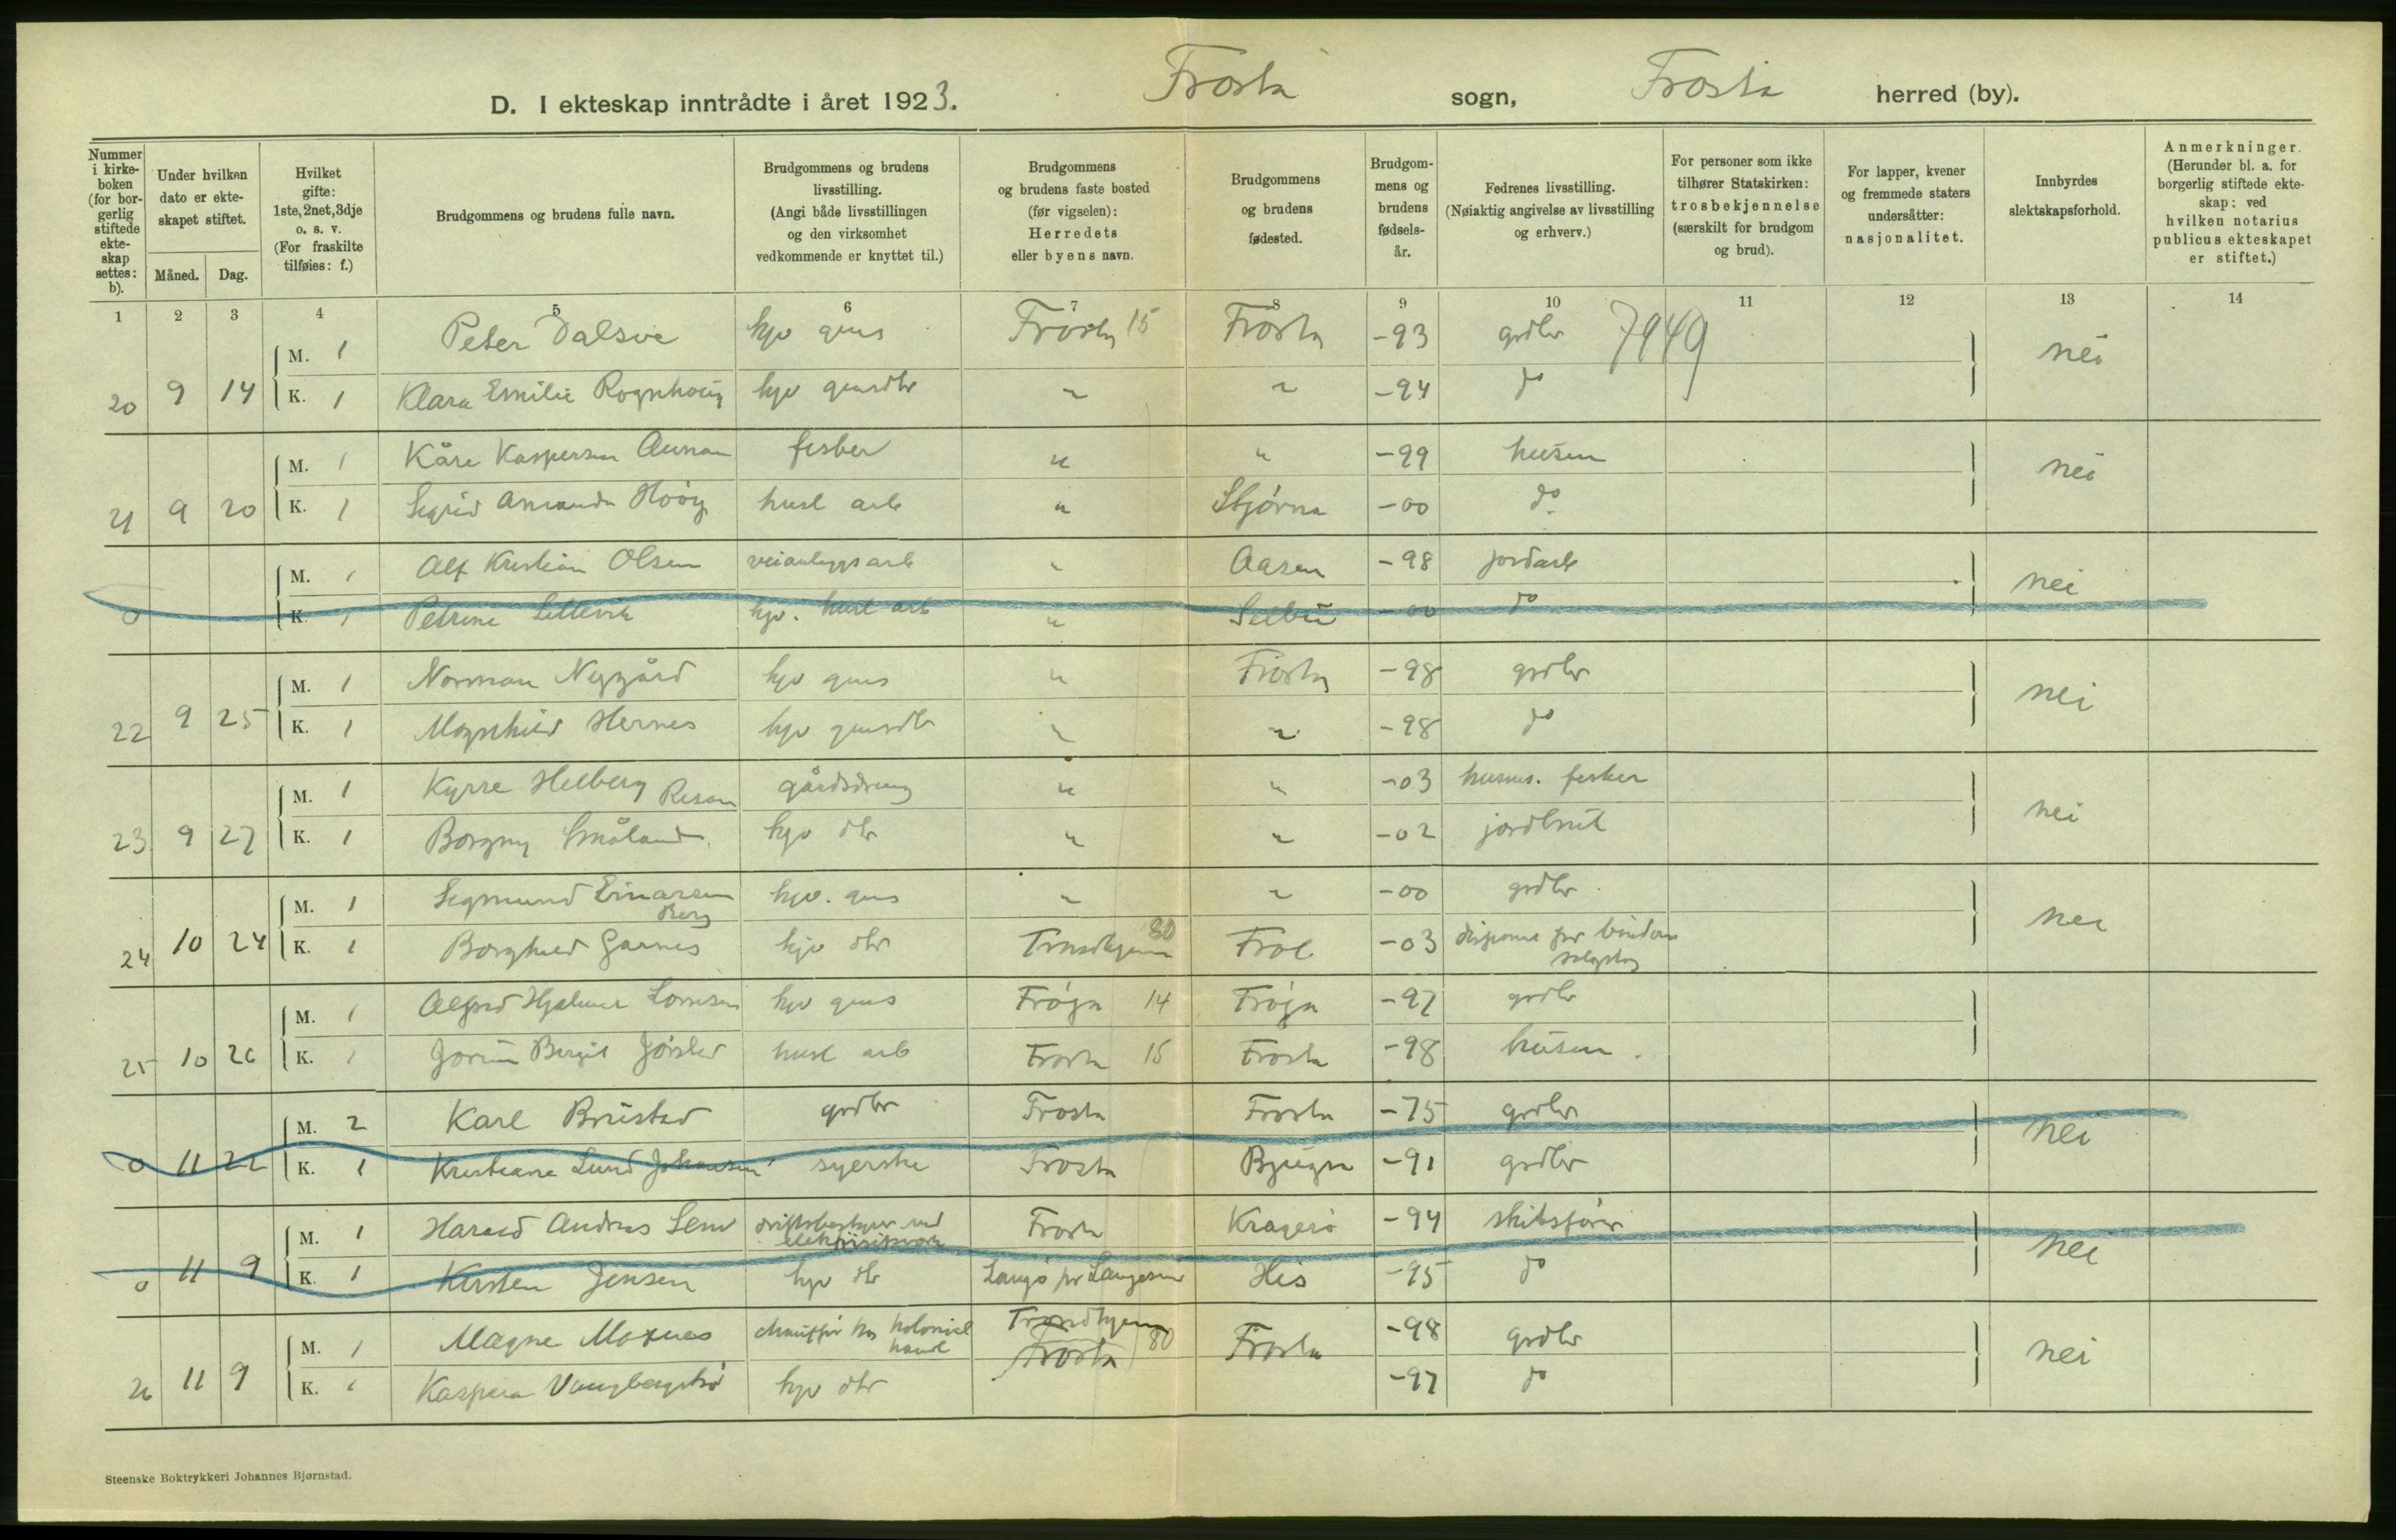 D. I ekteskap inntrådte i året 1923. Frosta sogn, Frosta herred (by).
Nummer i kirkeboken (for borgerlig stiftede ekteskap settes: b).
Under hvilken dato er ekteskapet stiftet.
Måned. Dag.
Hvilket gifte: 1ste, 2net, 3dje o. s. v. (For fraskilte tilføies: f.)
Brudgommens og brudens fulle navn.
Brudgommens og brudens livsstilling. (Angi både livsstillingen og den virksomhet vedkommende er knyttet til.)
Brudgommens og brudens faste bosted (før vigselen): Herredets eller byens navn.
Brudgommens og brudens fødested.
Brudgommens og brudens fødselsår.
Fedrenes livsstilling. (Nøiaktig angivelse av livsstilling og erhverv.)
For personer som ikke tilhører Statskirken: trosbekjennelse (særskilt for brudgom og brud).
For lapper, kvener og fremmede staters undersåtter: nasjonalitet.
Innbyrdes slektskapsforhold.
Anmerkninger. (Herunder bl. a. for borgerlig stiftede ekteskap: ved hvilken notarius publicus ekteskapet er stiftet.)
1 2 3 4 5 6 7 8 9 10 11 12 13 14
M. 1 Peter Dalsve hjv gms Frosta 15 Frosta -93 grdbr 7949 nei
20 9 14 K. 1 Klara Emilie Rognhaug hjv gmsdtr " " -94 do
M. 1 Kåre Kaspersen Aunan fisker " " -99 husm nei
21 9 20 K. 1 Sigrid Amanda Hoøy husl arb " Stjørna -00 do
M. 1 Alf Kristian Olsen veianleggsarb " Aasen -98 jordarb nei
0 K. 1 Petrine Lillevik hjv. husl arb " Selbu -00 do
M. 1 Norman Nygård hjv gms " Frosta -98 grdbr nei
22 9 25 K. 1 Magnhild Hernes hjv gmsdtr " " -98 do
M. 1 Kyrre Helberg Resan gårdsdreng " " -03 husm. fisker nei
23 9 27 K. 1 Borgny Småland hjv dtr " " -02 jordbruk
M. 1 Sigmund Einarsen Berg hjv. gms " " -00 grdbr nei
24 10 24 K. 1 Borghild Garnes hjv dtr Trondhjem 80 Frol -03 disponent for
M. 1 Alfred Hjalmar Lornsen hjv gms Frøya 14 Frøya -97 grdbr
25 10 26 K. 1 Jorun Bergit Jørstad husl arb Frosta 15 Frosta -98 husm
M. 2 Karl Brustad grdbr Frosta Frosta -75 grdbr nei
0 11 22 K. 1 Kristiane Lund Johansen syerske Frosta Bjugn -91 grdbr
M. 1 Harald Andreas Lem driftsbestyrer ved elektrisitetsverk Frosta Kragerø -94 skibsfører nei
0 11 9 K. 1 Kirsten Jensen hjv dtr Langø pr Langesund His -95 do
M. 1 Magne Moxnes chauffør hos kolonial handl Trondhjem Frosta 80 Frosta -98 grdbr nei
26 11 9 K. 1 Kaspara Vangbergstrø hjv dtr -97 do
Steenske Boktrykkeri Johannes Bjørnstad.